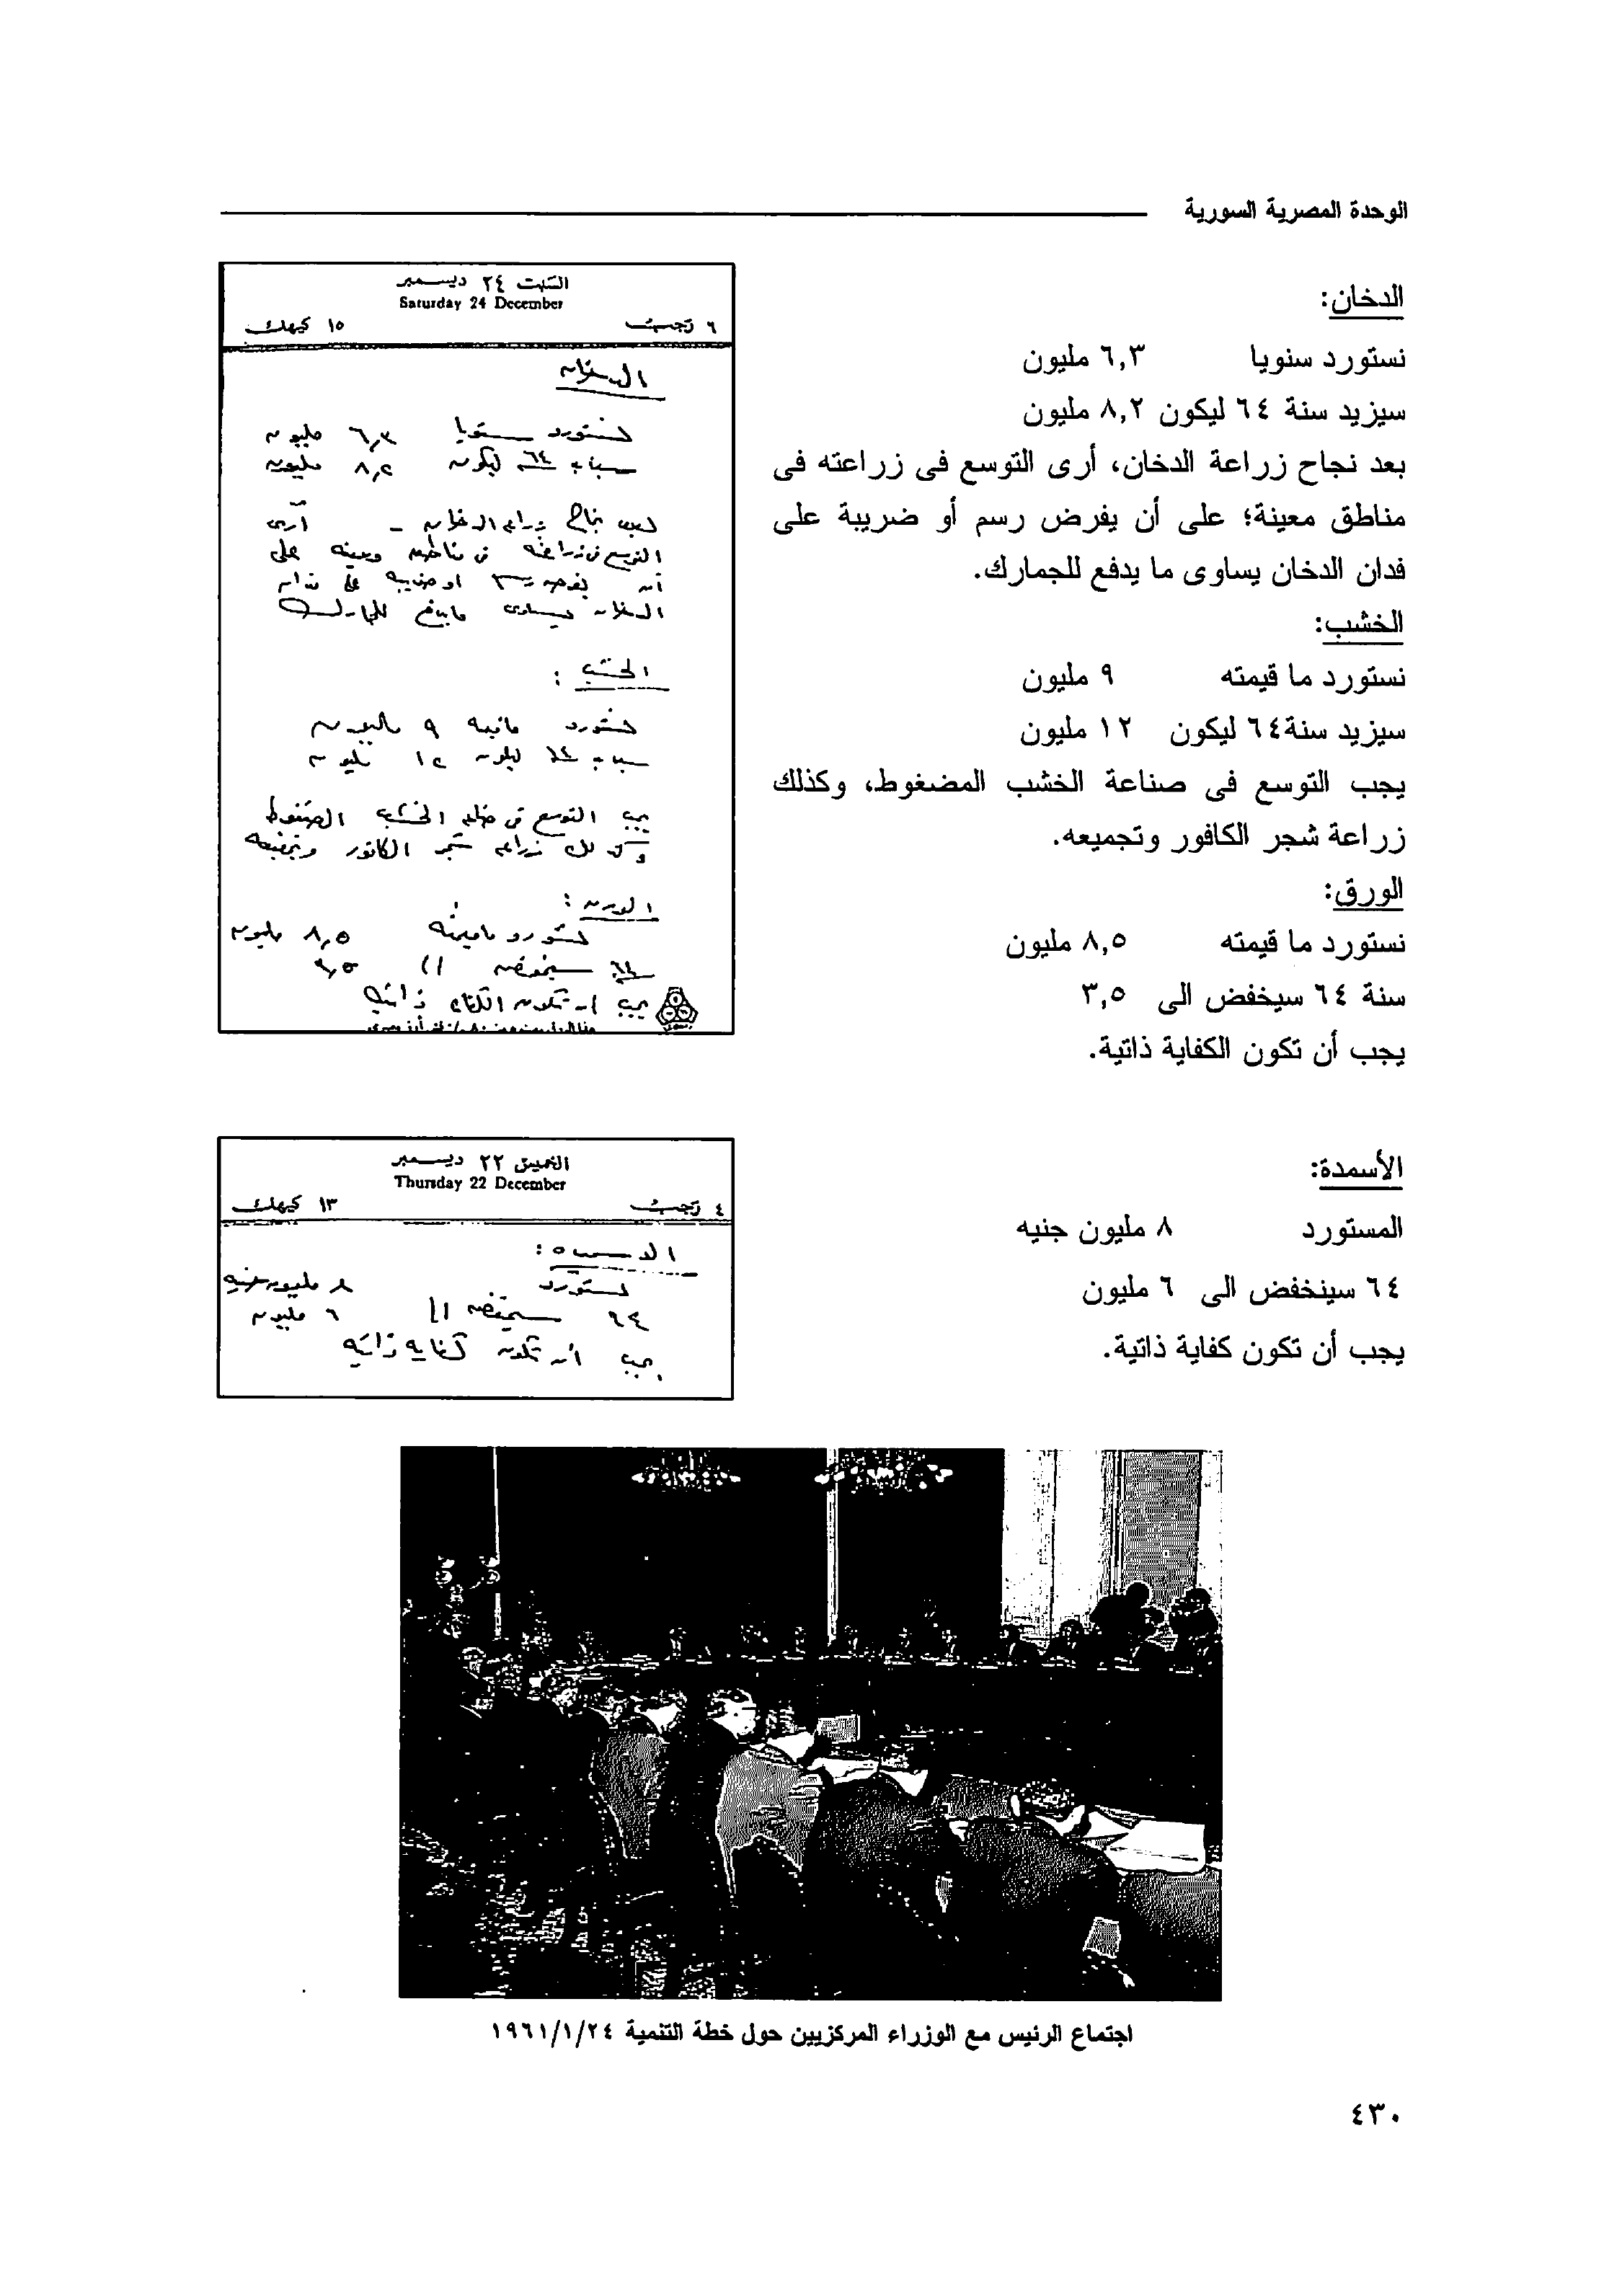 الوحدة المصرية السورية
الدخان:
نستورد سنويا ٦,٣ مليون
سيزيد سنة ٦٤ ليكون ٨,٢ مليون
بعد نجاح زراعة الدخان، أرى التوسع فى زراعته فى
مناطق معينة؛ على أن يفرض رسم أو ضريبة على
فدان الدخان يساوى ما يدفع للجمارك.
الخشب:
نستورد ما قيمته ٩ مليون
سيزيد سنة٦٤ ليكون ١٢ مليون
يجب التوسع فى صناعة الخشب المضغوط، وكذلك
زراعة شجر الكافور وتجميعه.
الورق:
نستورد ما قيمته ٨,٥ مليون
سنة ٦٤ سيخفض الى ٣,٥
يجب أن تكون الكفاية ذاتية.
السبت ٢٤ ديسمبر
Saturday 24 December
٦ رجب ١٥ كيهك
الدخان
نستورد سنويا ٦,٣ مليون
٦٤ ليكون ٨,٢ مليون
بعد نجاح زراعة الدخان - أرى
التوسع فى زراعته فى مناطق معينه على
أن يفرض رسم او ضريبه على فدان
الدخان يساوى ما يدفع للجمارك
الخشب :
نستورد ماقيمته ٩ مليون
٦٤ ليكون ١٢ مليون
يجب التوسع فى صناعة الخشب المضغوط
وكذلك زراعة شجر الكافور وتجميعه
الورق :
نستورد ماقيمته ٨,٥ مليون
٦٤ سيخفض الى ٣,٥
يجب أن تكون الكفايه ذاتيه
الأسمدة:
المستورد ٨ مليون جنيه
٦٤ سينخفض الى ٦ مليون
يجب أن تكون كفاية ذاتية.
الخميس ٢٢ ديسمبر
Thursday 22 December
٤ رجب ١٣ كيهك
نستورد ٨ مليون جنيه
٦٤ سيخفض الى ٦ مليون
يجب أن تكون كفايه ذاتيه
اجتماع الرئيس مع الوزراء المركزيين حول خطة التنمية ١٩٦١/١/٢٤
٤٣٠